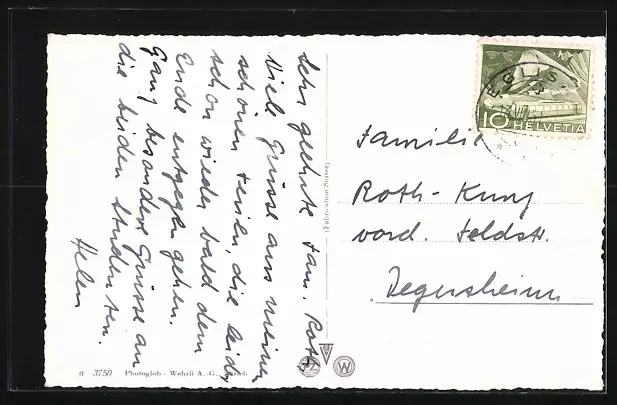 Sehr geehrte Fam. Roth
Viele Grüsse aus meinen
schönen Ferien, die leider
schon wieder bald dem
Ende entgegen gehen.
Ganz besondere Grüsse an
die beiden Studenten.
Helen
Familie
Roth-Kunz
vord. Feldstr.
Degersheim
10 HELVETIA
EGLIS
a 3750 Photoglob-Wehrli A.-G., Zürich
W